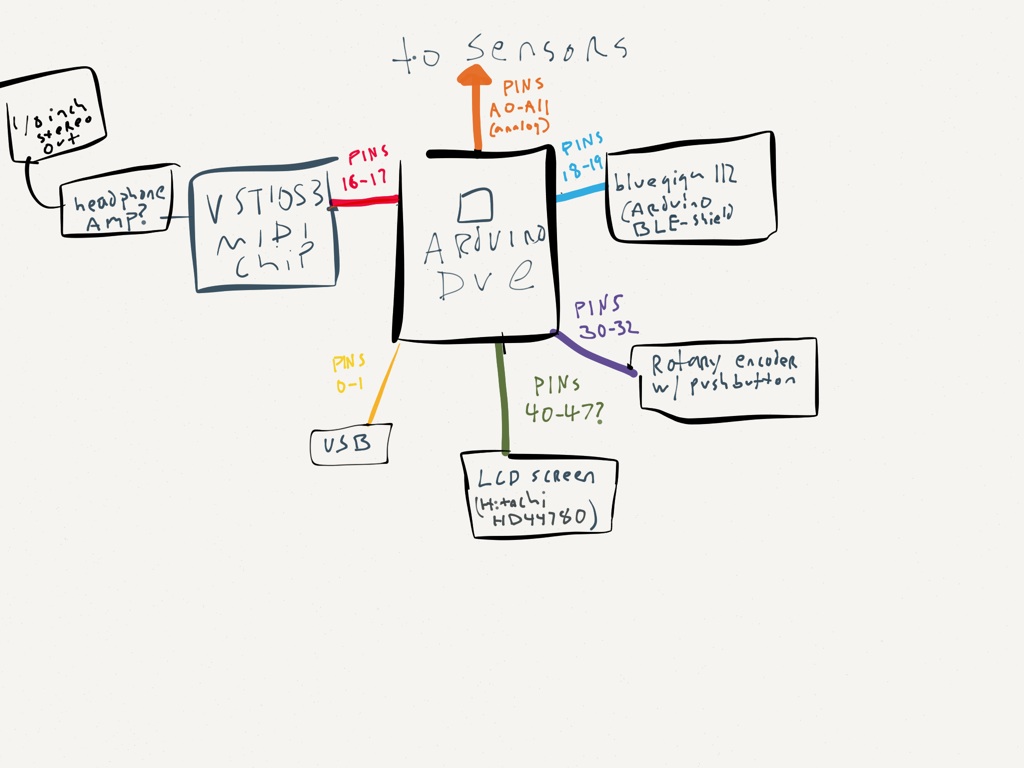 to sensors
PINS
A0-A11
(analog)
1/8 inch
stereo
out
headphone
AMP?
VS110S3
MIDI
Chip
PINS
16-17
ARduino
Due
PINS
18-19
bluegiga 112
(Arduino
BLE-shield)
PINS
30-32
Rotary encoder
w/ pushbutton
PINS
0-1
USB
PINS
40-47?
LCD screen
(Hitachi
HD44780)